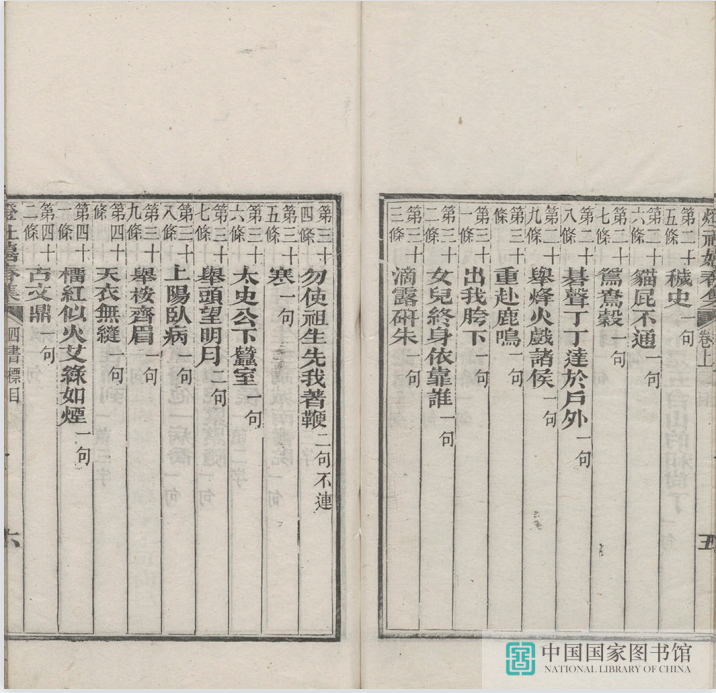 燈社嬉春集 卷上 五
第二十五條 穢史 一句
第二十六條 貓屁不通 一句
第二十七條 鴛鴦縠 一句
第二十八條 碁聲丁丁達於戶外 一句
第二十九條 舉烽火戲諸侯 一句
第三十條 重赴鹿鳴 一句
第三十一條 出我胯下 一句
第三十二條 女兒終身依靠誰 一句
第三十三條 滴露硏朱 一句
第三十四條 勿使祖生先我著鞭 二句不連
第三十五條 寒 一句
第三十六條 太史公下蠶室 一句
第三十七條 舉頭望明月 二句
第三十八條 上陽臥病 一句
第三十九條 舉桉齊眉 一句
第四十條 天衣無縫 一句
第四十一條 橊紅似火艾綠如煙 一句
第四十二條 古文鼎 一句
燈社嬉春集 四書標目 六
中国国家图书馆
NATIONAL LIBRARY OF CHINA